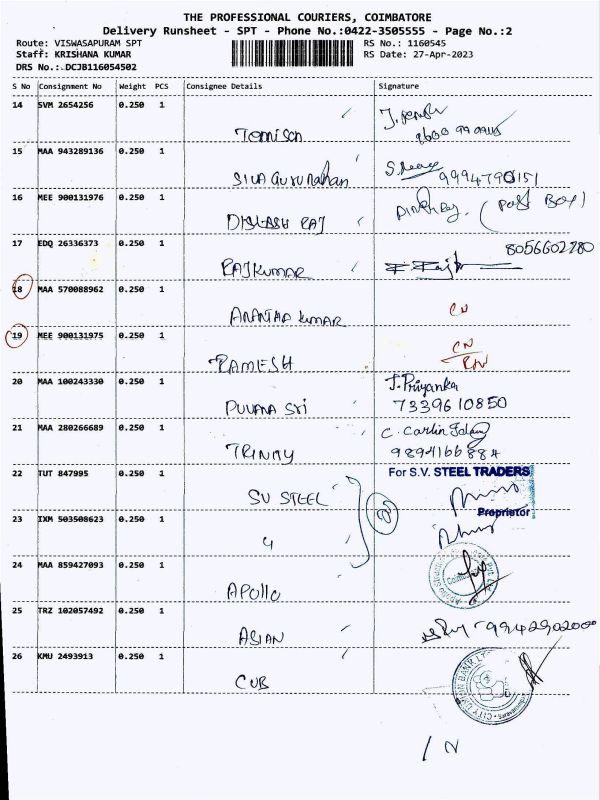 THE PROFESSIONAL COURIERS, COIMBATORE
Delivery Runsheet - SPT - Phone No.:0422-3505555 - Page No.:2
Route: VISWASAPURAM SPT RS No.: 1160545
Staff: KRISHANA KUMAR RS Date: 27-Apr-2023
DRS No.:.DCJB116054502
S No Consignment No Weight PCS Consignee Details Signature
14 SVM 2654256 0.250 1
Tomison
15 MAA 943289136 0.250 1
SIVA Gurunathan 9994790151
16 MEE 900131976 0.250 1
DINESH RAJ (Post Box)
17 EDQ 26336373 0.250 1 8056602280
RAJKUMAR
18 MAA 570088962 0.250 1
ANANTHA KUMAR CN
19 MEE 900131975 0.250 1 CN
RAMESH
20 MAA 100243330 0.250 1 J. Priyanka
PUVANA SRI 7339610850
21 MAA 280266689 0.250 1 C. Carlin
TRINITY 9894166884
22 TUT 847995 0.250 1 For S.V. STEEL TRADERS
SV STEEL Proprietor
23 IXM 503508623 0.250 1
24 MAA 859427093 0.250 1
APOLLO
25 TRZ 102057492 0.250 1
ASIAN 9942902000
26 KMU 2493913 0.250 1
CUB CITY UNION BANK LTD